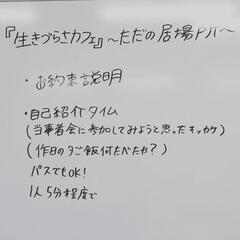 『生きづらさカフェ』～ただの居場所～
・お約束説明
・自己紹介タイム
(当事者会に参加してみようと思ったキッカケ)
(昨日の夕ご飯何たべたか?)
パスでもOK!
1人5分程度で